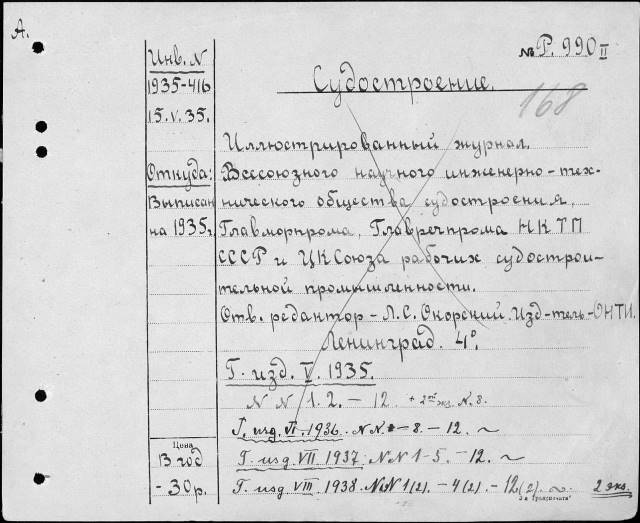 А.
№ Р. 990 II
Судостроение.
168
Инв. N
1935-416
15.V.35.
Откуда:
Выписан
на 1935г.
Иллюстрированный журнал.
Всесоюзного научного инженерно-тех-
нического общества судостроения,
Главморпрома, Главречпрома НКТП
СССР и ЦК Союза рабочих судострои-
тельной промышленности.
Отв. редактор - Л.С. Окорский. Изд-тель - ОНТИ.
Ленинград. 4°.
Г. изд. V. 1935.
N N 1. 2. - 12. + 2ой экз. N. 8.
Г. изд. VI. 1936. N N. - 8 - 12. ~
Г. изд. VII 1937. N N 1-5. - 12. ~
Г. изд. VIII. 1938. N N 1(2). - 4(2). - 12(2). ~ 2 экз.
Цена
В год
- 30р.